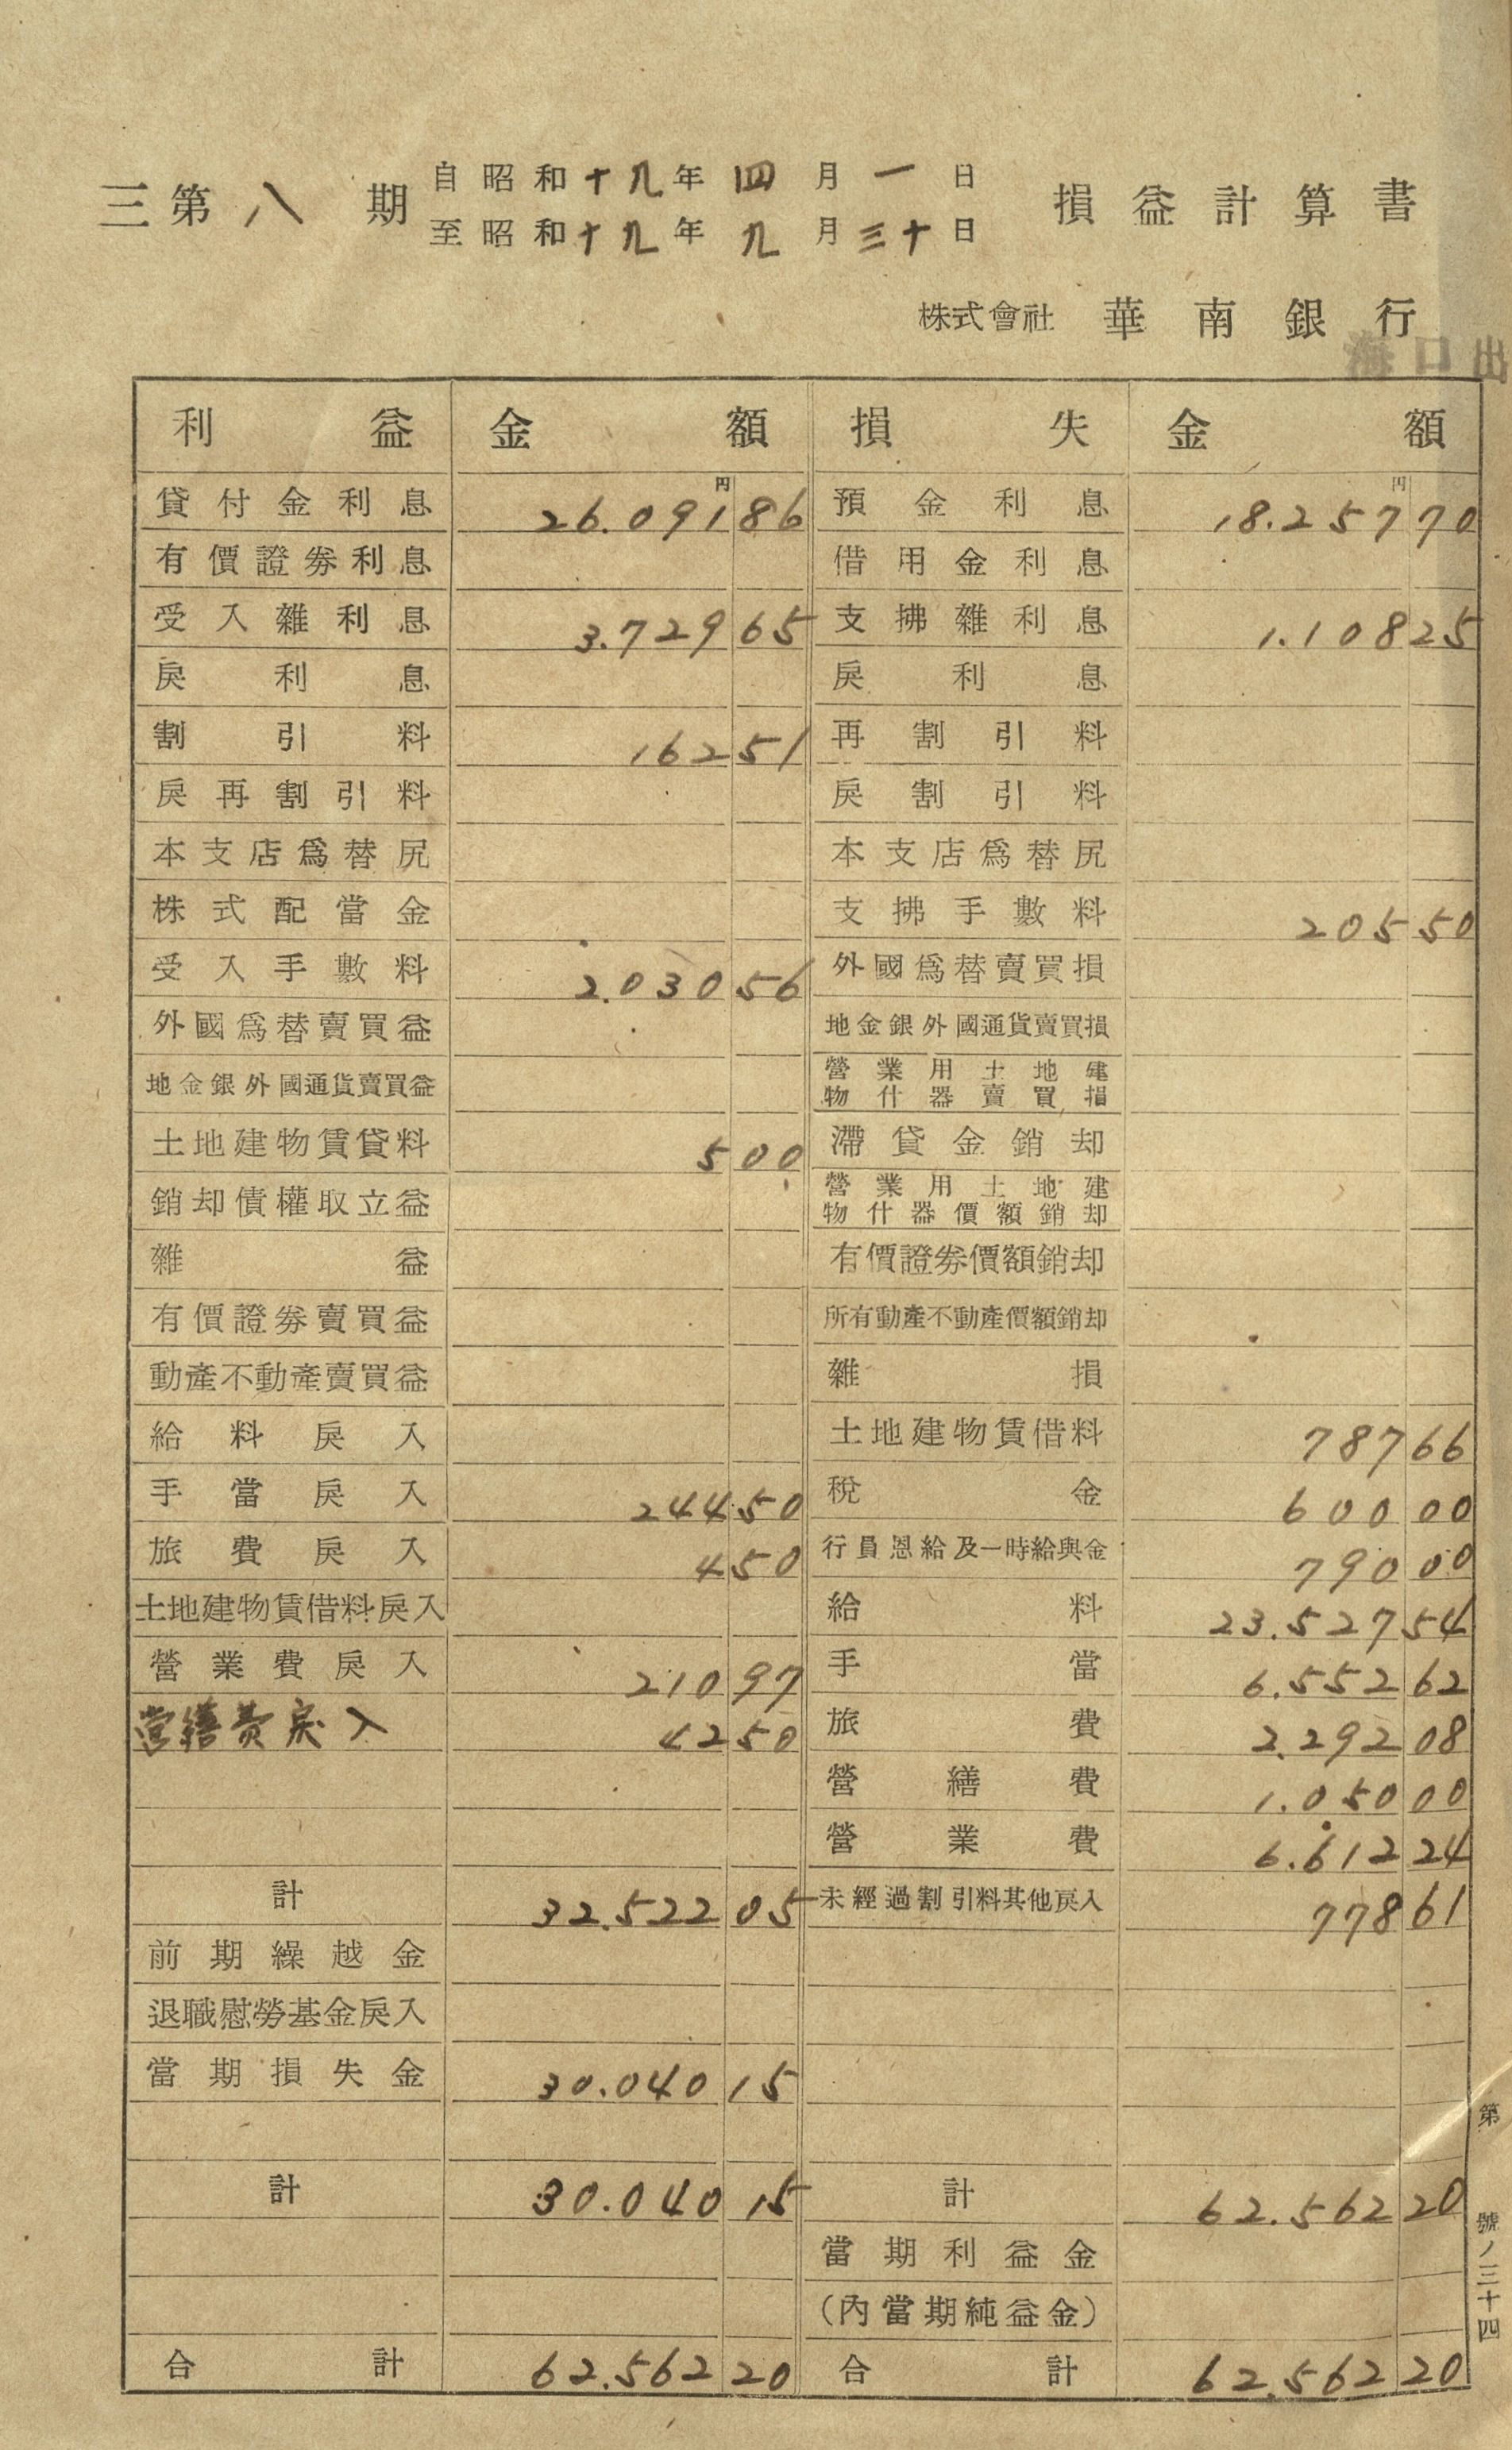 三第八期 自昭和十九年四月一日 損益計算書
至昭和十九年九月三十日
株式會社 華南銀行
海口出
利益 金額 損失 金額
貸付金利息 26.091 円 86 預金利息 18.257 円 70
有價證券利息 借用金利息
受入雜利息 3.729 65 支拂雜利息 1.108 25
戾利息 戾利息
割引料 162 51 再割引料
戾再割引料 戾割引料
本支店爲替尻 本支店爲替尻
株式配當金 支拂手數料 205 50
受入手數料 2.030 56 外國爲替賣買損
外國爲替賣買益 地金銀外國通貨賣買損
地金銀外國通貨賣買益 營業用土地建物什器賣買損
土地建物賃貸料 5 00 滯貸金銷却
銷却債權取立益 營業用土地建物什器價額銷却
雜益 有價證券價額銷却
有價證券賣買益 所有動產不動產價額銷却
動產不動產賣買益 雜損
給料戾入 土地建物賃借料 787 66
手當戾入 244 50 稅金 600 00
旅費戾入 4 50 行員恩給及一時給與金 790 00
土地建物賃借料戾入 給料 23.527 54
營業費戾入 210 97 手當 6.552 62
営繕費戻入 42 50 旅費 2.292 08
營繕費 1.050 00
營業費 6.612 24
計 32.522 05 未經過割引料其他戾入 778 61
前期繰越金
退職慰勞基金戾入
當期損失金 30.040 15
計 30.040 15 計 62.562 20
當期利益金
(內當期純益金)
合計 62.562 20 合計 62.562 20
第 號ノ三十四